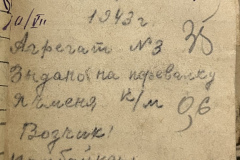 10/VII 1943 г.
Агрегат №3 35
Здано на перевалку
Ячменя к/м 0,6
Возчик: